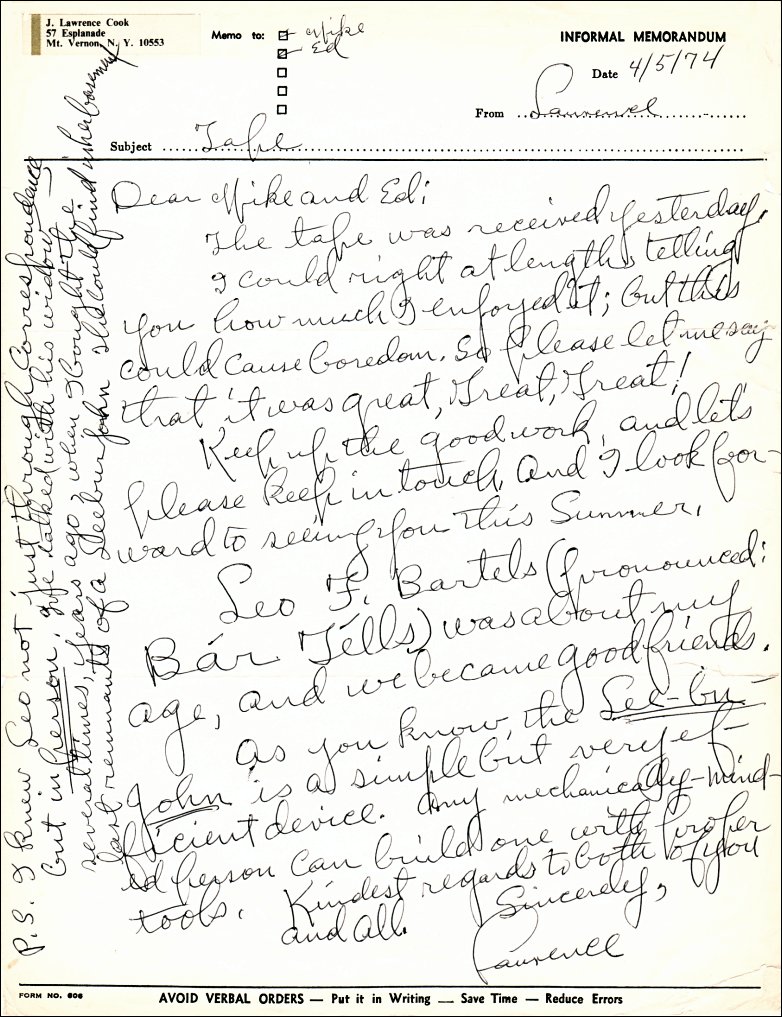 J. Lawrence Cook
57 Esplanade
Mt. Vernon, N. Y. 10553
Memo to:
Mike
Ed
INFORMAL MEMORANDUM
Date 4/5/74
From Lawrence
Subject Tape
Dear Mike and Ed:
The tape was received yesterday.
I could right at length, telling
you how much I enjoyed it; but this
could cause boredom. So please let me say
that it was great, Great, Great!
Keep up the good work, and let's
please keep in touch. And I look for-
ward to seeing you this Summer.
Leo F. Bartels (pronounced:
Bár Télls) was about my
age, and we became good friends.
As you know, the See-bu-
John is a simple but very ef-
ficient device. Any mechanically-mind-
ed person can build one with proper
tools. Kindest regards to both of you
and all.
Sincerely,
Lawrence
P.S. I knew Leo not just through correspondence
but in person, I've talked with his widow
several times, years ago, when I bought the
last remnants of a Seebur John she could find in her basement
FORM NO. 606
AVOID VERBAL ORDERS — Put it in Writing — Save Time — Reduce Errors